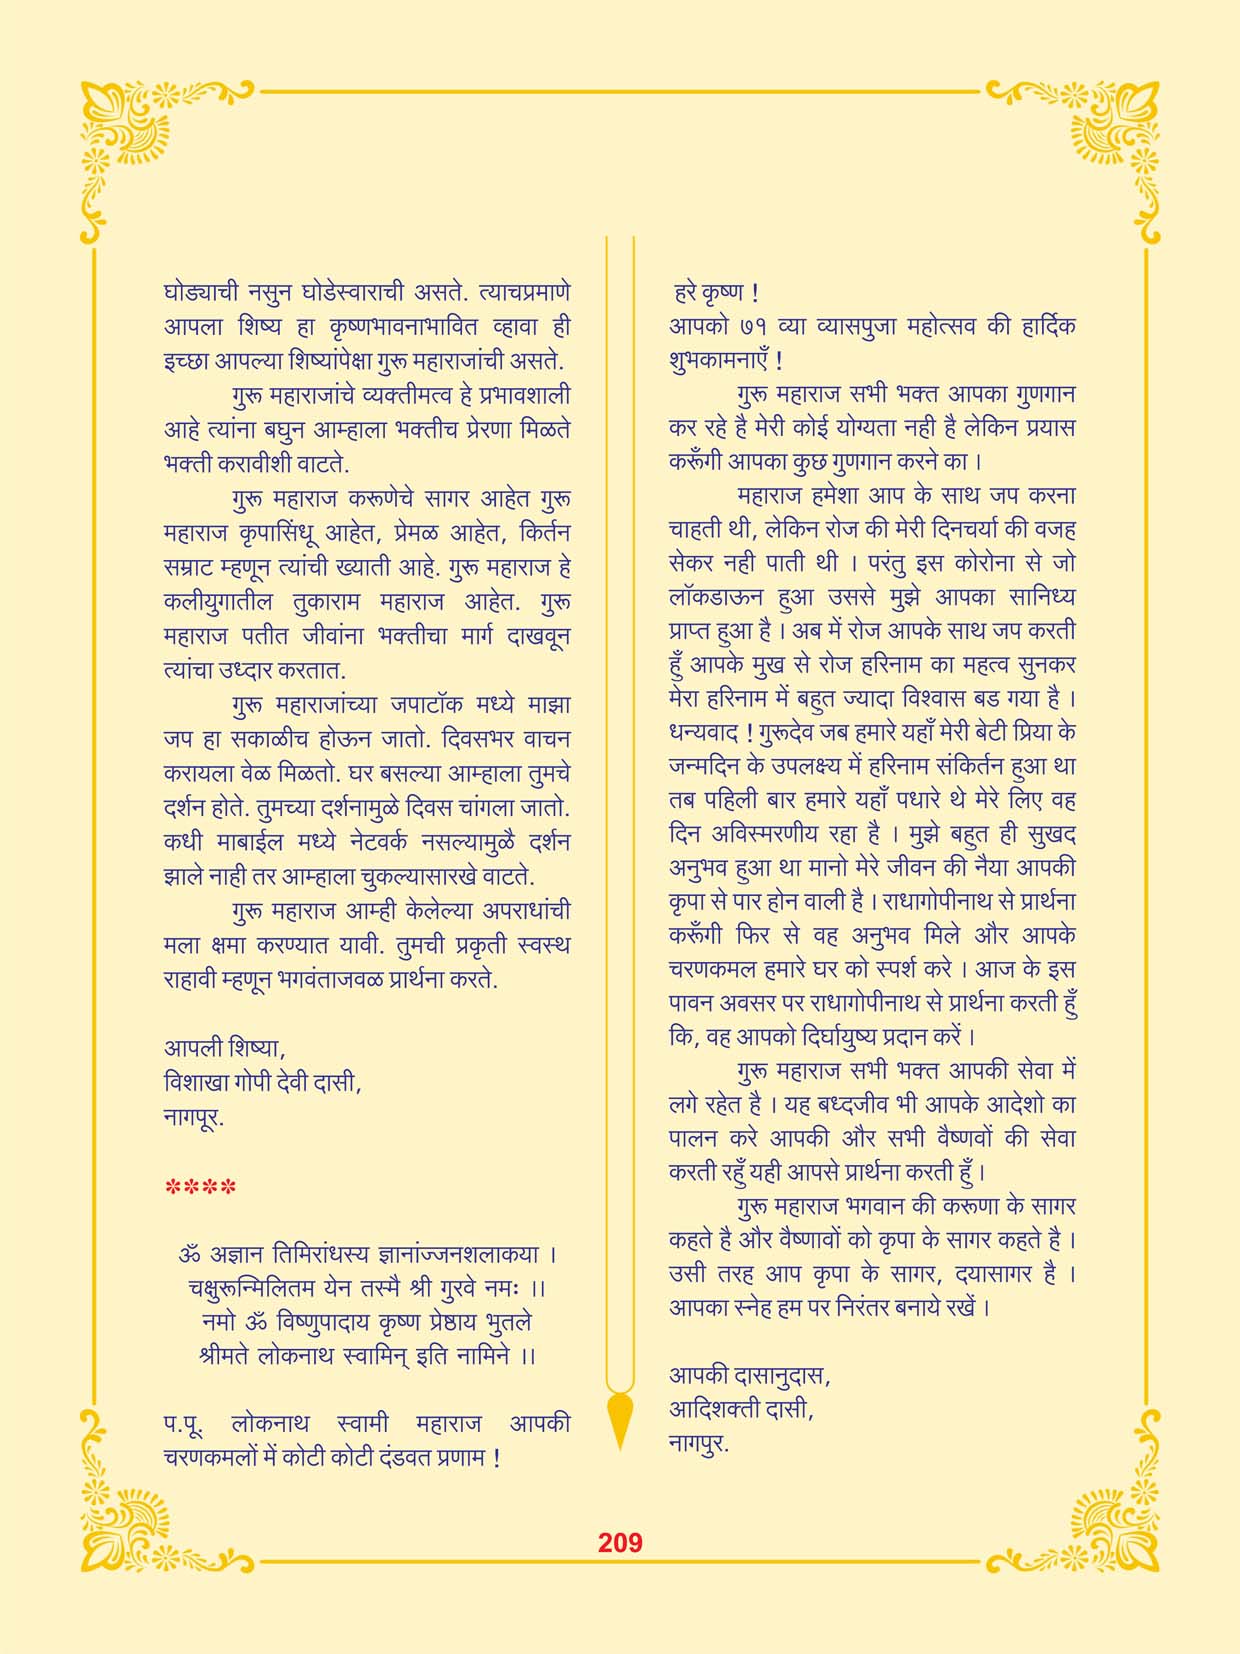 घोड्याची नसुन घोडेस्वाराची असते. त्याचप्रमाणे
आपला शिष्य हा कृष्णभावनाभावित व्हावा ही
इच्छा आपल्या शिष्यांपेक्षा गुरू महाराजांची असते.
गुरू महाराजांचे व्यक्तीमत्व हे प्रभावशाली
आहे त्यांना बघुन आम्हाला भक्तीच प्रेरणा मिळते
भक्ती करावीशी वाटते.
गुरू महाराज करूणेचे सागर आहेत गुरू
महाराज कृपासिंधू आहेत, प्रेमळ आहेत, किर्तन
सम्राट म्हणून त्यांची ख्याती आहे. गुरू महाराज हे
कलीयुगातील तुकाराम महाराज आहेत. गुरू
महाराज पतीत जीवांना भक्तीचा मार्ग दाखवून
त्यांचा उध्दार करतात.
गुरू महाराजांच्या जपाटॉक मध्ये माझा
जप हा सकाळीच होऊन जातो. दिवसभर वाचन
करायला वेळ मिळतो. घर बसल्या आम्हाला तुमचे
दर्शन होते. तुमच्या दर्शनामुळे दिवस चांगला जातो.
कधी माबाईल मध्ये नेटवर्क नसल्यामुळै दर्शन
झाले नाही तर आम्हाला चुकल्यासारखे वाटते.
गुरू महाराज आम्ही केलेल्या अपराधांची
मला क्षमा करण्यात यावी. तुमची प्रकृती स्वस्थ
राहावी म्हणून भगवंताजवळ प्रार्थना करते.
आपली शिष्या,
विशाखा गोपी देवी दासी,
नागपूर.
****
ॐ अज्ञान तिमिरांधस्य ज्ञानांज्जनशलाकया ।
चक्षुरून्मिलितम येन तस्मै श्री गुरवे नमः ।।
नमो ॐ विष्णुपादाय कृष्ण प्रेष्ठाय भुतले
श्रीमते लोकनाथ स्वामिन् इति नामिने ।।
प.पू. लोकनाथ स्वामी महाराज आपकी
चरणकमलों में कोटी कोटी दंडवत प्रणाम !
हरे कृष्ण !
आपको ७१ व्या व्यासपुजा महोत्सव की हार्दिक
शुभकामनाएँ !
गुरू महाराज सभी भक्त आपका गुणगान
कर रहे है मेरी कोई योग्यता नही है लेकिन प्रयास
करूँगी आपका कुछ गुणगान करने का ।
महाराज हमेशा आप के साथ जप करना
चाहती थी, लेकिन रोज की मेरी दिनचर्या की वजह
सेकर नही पाती थी । परंतु इस कोरोना से जो
लॉकडाऊन हुआ उससे मुझे आपका सानिध्य
प्राप्त हुआ है । अब में रोज आपके साथ जप करती
हुँ आपके मुख से रोज हरिनाम का महत्व सुनकर
मेरा हरिनाम में बहुत ज्यादा विश्वास बड गया है ।
धन्यवाद ! गुरूदेव जब हमारे यहाँ मेरी बेटी प्रिया के
जन्मदिन के उपलक्ष्य में हरिनाम संकिर्तन हुआ था
तब पहिली बार हमारे यहाँ पधारे थे मेरे लिए वह
दिन अविस्मरणीय रहा है । मुझे बहुत ही सुखद
अनुभव हुआ था मानो मेरे जीवन की नैया आपकी
कृपा से पार होन वाली है । राधागोपीनाथ से प्रार्थना
करूँगी फिर से वह अनुभव मिले और आपके
चरणकमल हमारे घर को स्पर्श करे । आज के इस
पावन अवसर पर राधागोपीनाथ से प्रार्थना करती हुँ
कि, वह आपको दिर्घायुष्य प्रदान करें ।
गुरू महाराज सभी भक्त आपकी सेवा में
लगे रहेत है । यह बध्दजीव भी आपके आदेशो का
पालन करे आपकी और सभी वैष्णवों की सेवा
करती रहुँ यही आपसे प्रार्थना करती हुँ ।
गुरू महाराज भगवान की करूणा के सागर
कहते है और वैष्णावों को कृपा के सागर कहते है ।
उसी तरह आप कृपा के सागर, दयासागर है ।
आपका स्नेह हम पर निरंतर बनाये रखें ।
आपकी दासानुदास,
आदिशक्ती दासी,
नागपुर.
209